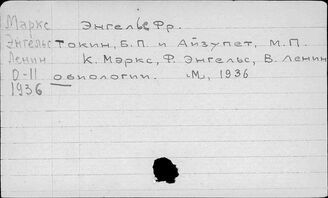 Маркс Энгельс Фр.
Энгельс Токин, Б.П. и Айзупет, М.П.
Ленин К. Маркс, Ф. Энгельс, В. Ленин
О-II о биологии. М, 1936
1936